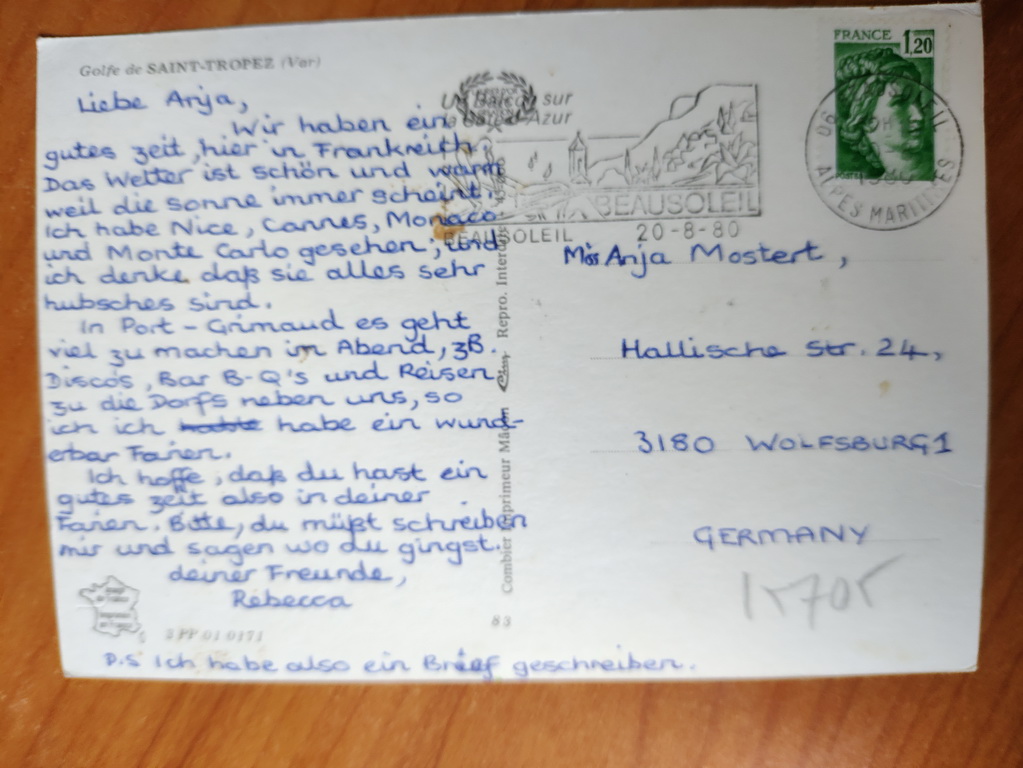 Golfe de SAINT-TROPEZ (Var)
Liebe Anja,
Wir haben ein
gutes zeit, hier in Frankreich.
Das Wetter ist schön und warm
weil die sonne immer scheint.
Ich habe Nice, Cannes, Monaco
und Monte Carlo gesehen; und
ich denke daß sie alles sehr
hubsches sind.
In Port-Grimaud es geht
viel zu machen im Abend, zB.
Disco's, Bar B-Q's und Reisen
zu die Dorfs neben uns, so
ich ich habe ein wund-
erbar Farien.
Ich hoffe, daß du hast ein
gutes zeit also in deiner
Farien. Bitte, du müßt schreiben
mir und sagen wo du gingst.
deiner Freunde,
Rebecca
P.S Ich habe also ein Brief geschreiben.
3 PP 01 0171
83
Combier Imprimeur Mâcon
Repro. Interdite
Un Balcon sur
la Côte d'Azur
BEAUSOLEIL
BEAUSOLEIL 20-8-80
FRANCE 1,20
06
ALPES MARITIMES
Miss Anja Mostert,
Hallische Str. 24,
3180 WOLFSBURG 1
GERMANY